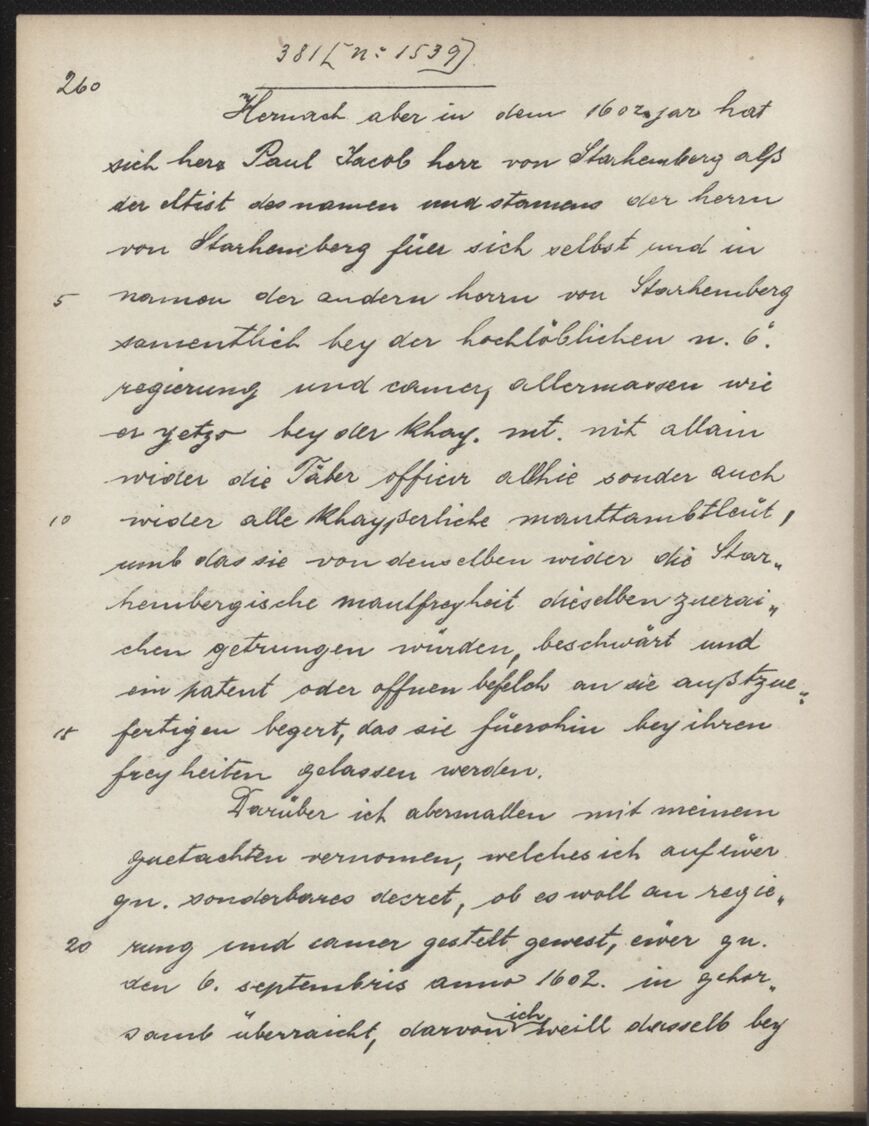 381/[nº 1539]
260
Hernach aber in dem 1602. jar hat
sich herr Paul Jacob herr von Starhemberg alß
der eltist des namen und stamens der herrn
von Starhemberg füer sich selbst und in
5 namen der andern herrn von Starhemberg
samentlich bey der hochlöblichen n. ö.
regierung und camer, allermassen wie
er yetzo bey der khay. mt. nit allain
wider die Täber officir alhie sonder auch
10 wider alle khayßerliche mauttambtleüt,
umb das sie von denselben wider die Star„
hembergische mautfreyheit dieselben zuerai„
chen getrungen würden, beschwärt und
ein patent oder offnen befelch an sie außtzue„
15 fertigen begert, das sie füerohin bey ihren
freyheiten gelassen werden.
Darüber ich abermallen mit meinem
guetachten vernomen, welches ich auf eüer
gn. sonderbares decret, ob es woll an regie„
20 rung und camer gestelt gewest, eüer gn.
den 6. septembris anno 1602. in gehor„
samb überraicht, darvon ich weill dasselb bey